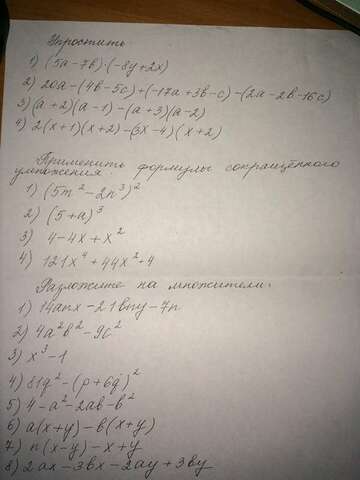 Упростить
1) (5a-7b)·(-8y+2x)
2) 20a-(4b-5c)+(-17a+3b-c)-(2a-2b-16c)
3) (a+2)(a-1)-(a+3)(a-2)
4) 2(x+1)(x+2)-(3x-4)(x+2)
Применить формулы сокращённого
умножения:
1) (5m²-2n³)²
2) (5+a)³
3) 4-4x+x²
4) 121x⁴+44x²+4
Разложите на множители:
1) 14anx-21bny-7n
2) 4a²b²-9c²
3) x³-1
4) 81q²-(p+6q)²
5) 4-a²-2ab-b²
6) a(x+y)-b(x+y)
7) n(x-y)-x+y
8) 2ax-3bx-2ay+3by